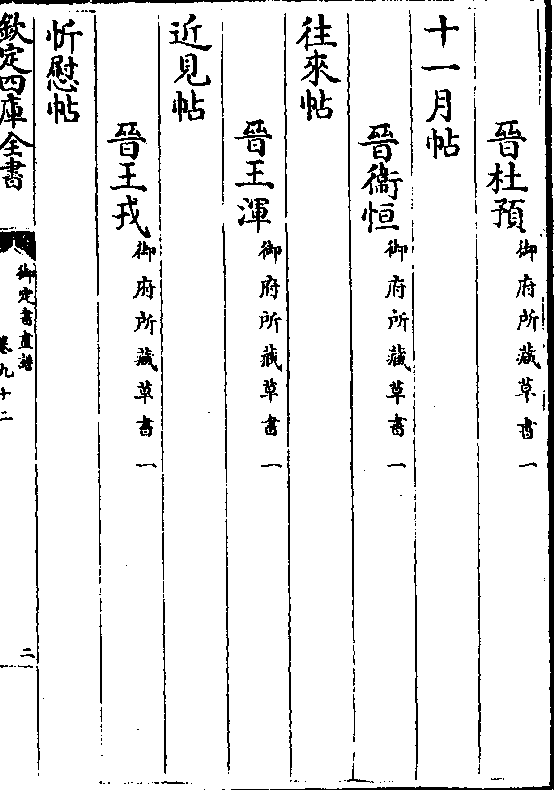 晉杜預御府所藏草書一
十一月帖
晉衛恒御府所藏草書一
往來帖
晉王渾御府所藏草書一
近見帖
晉王戎御府所藏草書一
忻慰帖
欽定四庫全書
御定書畫譜
卷九十二
二